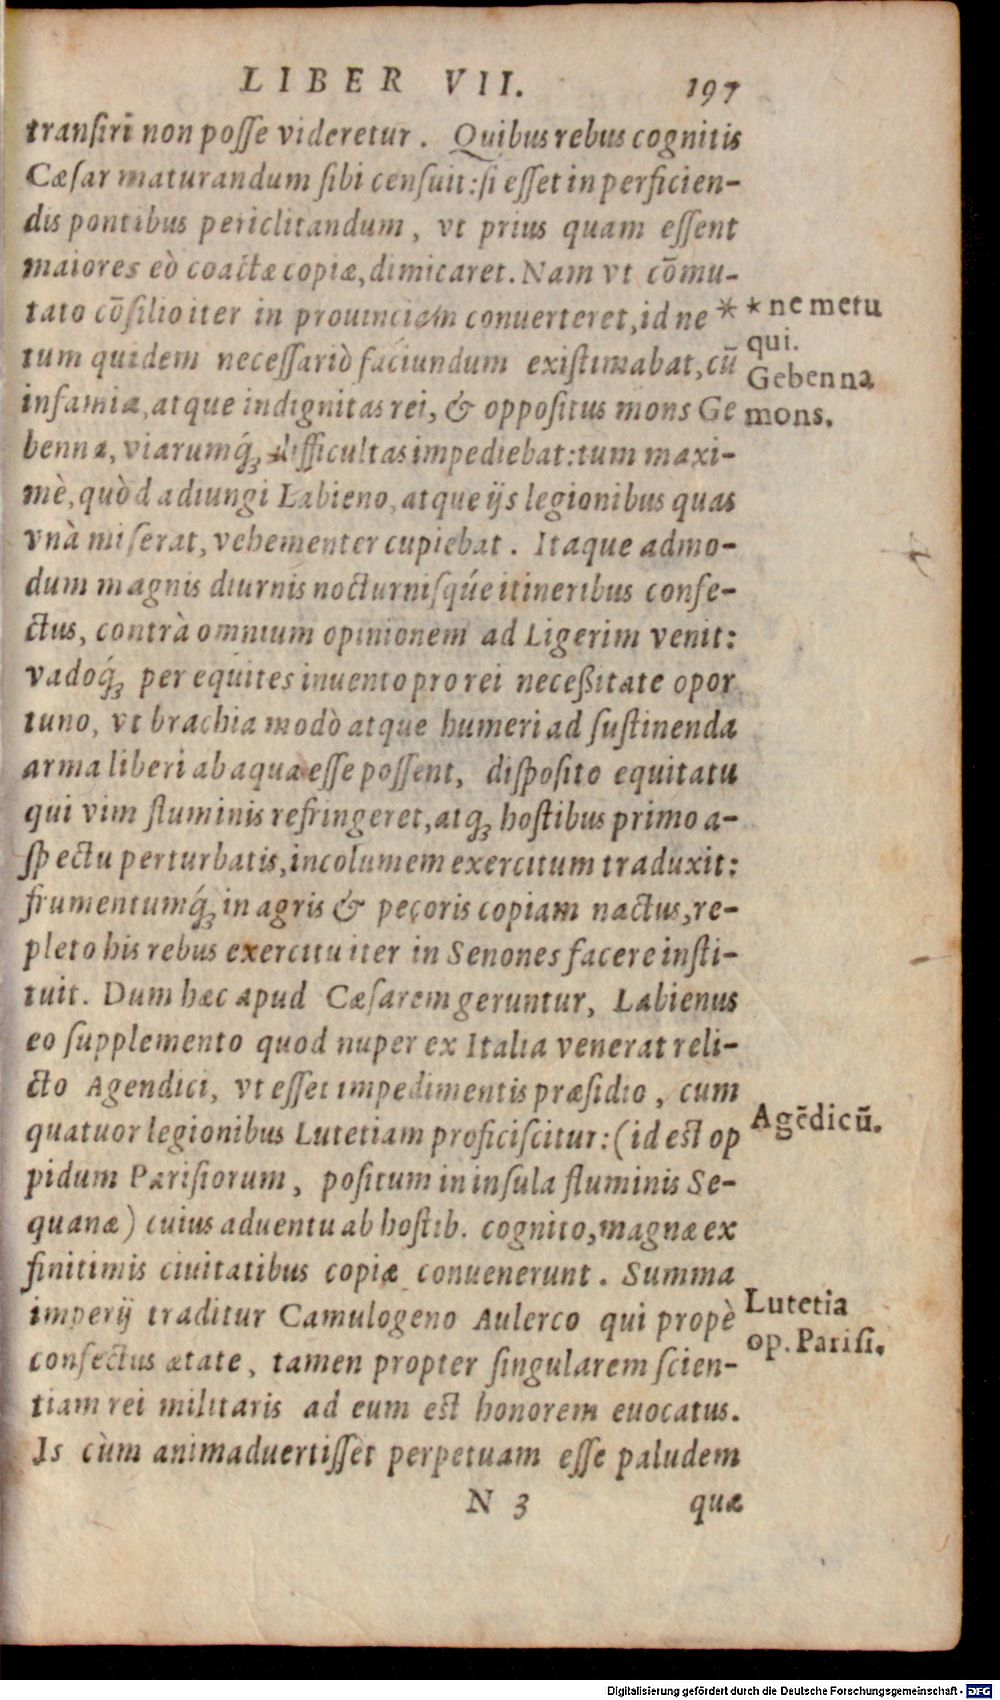 LIBER VII. 197
transiri non posse videretur. Quibus rebus cognitis
Cæsar maturandum sibi censuit: si esset in perficien-
dis pontibus periclitandum, vt prius quam essent
maiores eò coactæ copiæ, dimicaret. Nam vt cōmu-
tato cōsilio iter in prouinciam conuerteret, id ne *
tum quidem necessariò faciundum existimabat, cū
infamia, atque indignitas rei, & oppositus mons Ge
benna, viarumq́ꝫ difficultas impediebat: tum maxi-
mè, quòd adiungi Labieno, atque ijs legionibus quas
vnà miserat, vehementer cupiebat. Itaque admo-
dum magnis diurnis nocturnisq́ue itineribus confe-
ctus, contrà omnium opinionem ad Ligerim venit:
vadoq́ꝫ per equites inuento pro rei neceßitate opor
tuno, vt brachia modò atque humeri ad sustinenda
arma liberi ab aqua esse possent, disposito equitatu
qui vim fluminis refringeret, atqꝫ hostibus primo a-
spectu perturbatis, incolumem exercitum traduxit:
frumentumq́ꝫ in agris & pecoris copiam nactus, re-
pleto his rebus exercitu iter in Senones facere insti-
tuit. Dum hæc apud Cæsarem geruntur, Labienus
eo supplemento quod nuper ex Italia venerat reli-
cto Agendici, vt esset impedimentis præsidio, cum
quatuor legionibus Lutetiam proficiscitur: (id est op
pidum Parisiorum, positum in insula fluminis Se-
quanæ) cuius aduentu ab hostib. cognito, magnæ ex
finitimis ciuitatibus copiæ conuenerunt. Summa
imperij traditur Camulogeno Aulerco qui propè
confectus ætate, tamen propter singularem scien-
tiam rei militaris ad eum est honorem euocatus.
Is cùm animaduertisset perpetuam esse paludem
N 3 quæ
* ne metu
qui.
Gebenna
mons.
Agēdicū.
Lutetia
op. Parisi.
Digitalisierung gefördert durch die Deutsche Forschungsgemeinschaft - DFG